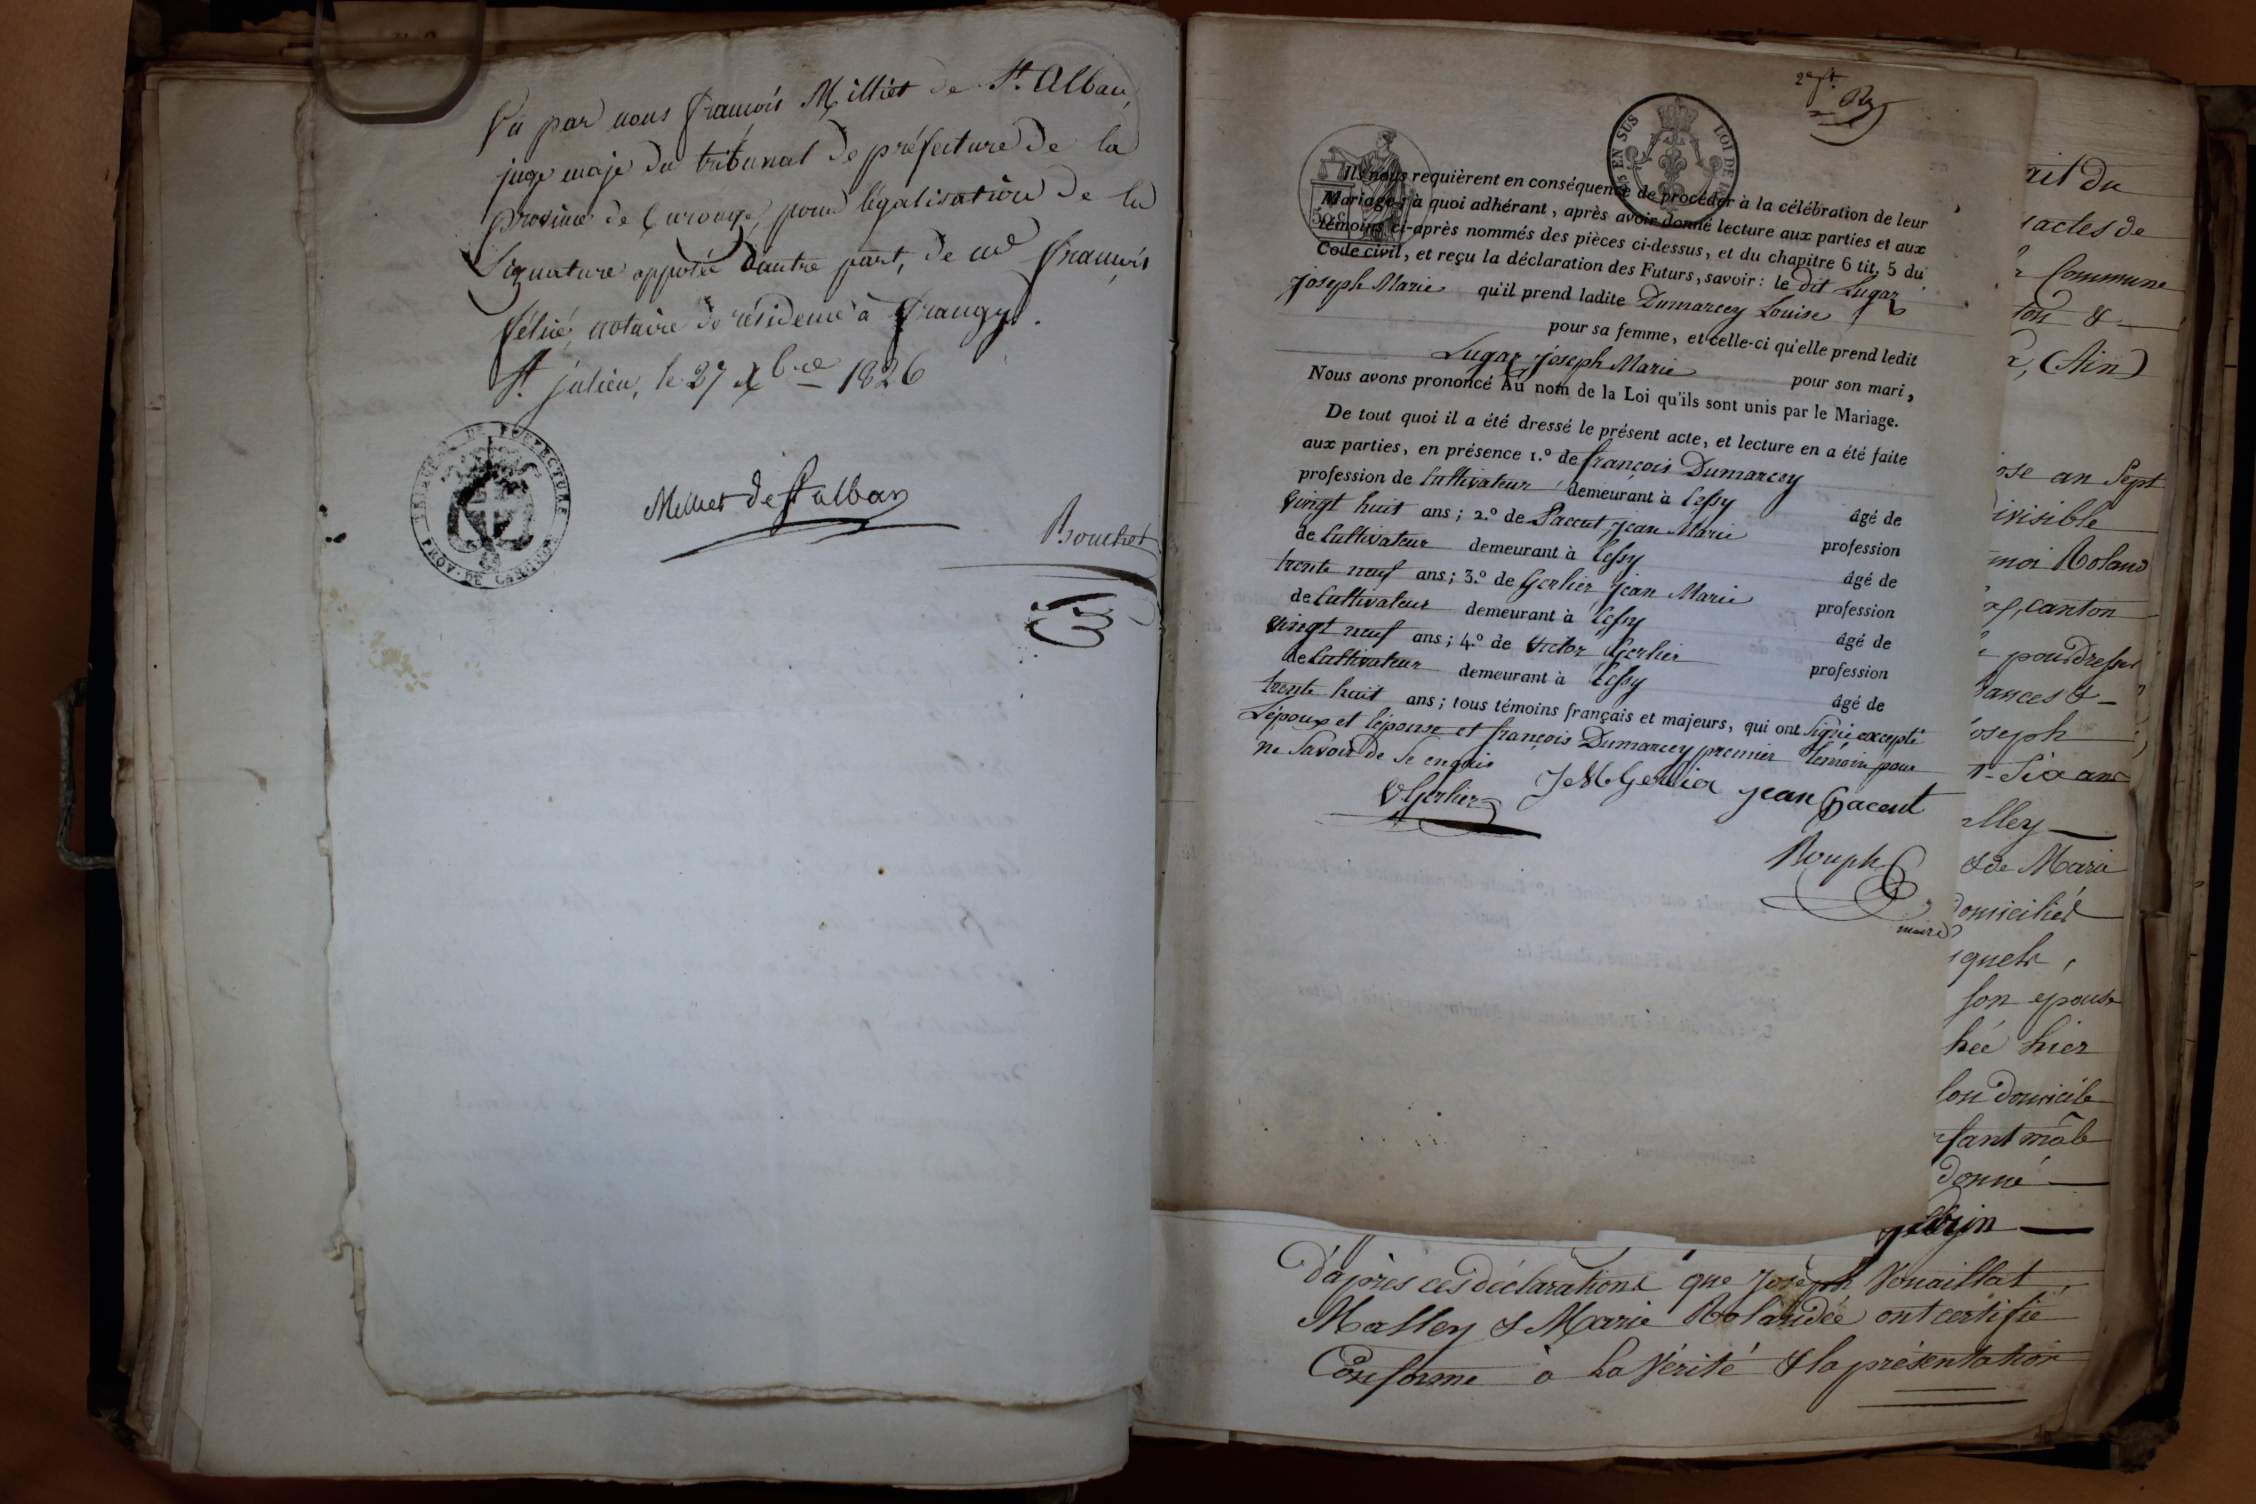 Vu par nous François Milliet de St. Alban,
juge maje du tribunal de préfecture de la
province de Carouge, pour légalisation de la
Signature apposée d'autre part, de me François
notaire de résidence à Frangy.
St. julien, le 27 Xbre 1826
TRIBUNAL DE PREFECTURE
PROV. DE CAROUGE
Milliet de St alban
Bouchet
EN SUS
LOI DE
Ils nous requièrent en conséquence de procéder à la célébration de leur
Mariage; à quoi adhérant, après avoir donné lecture aux parties et aux
témoins ci-après nommés des pièces ci-dessus, et du chapitre 6 tit. 5 du
Code civil, et reçu la déclaration des Futurs, savoir: le dit Lugaz
Joseph Marie qu'il prend ladite Dumarcey Louise
pour sa femme, et celle-ci qu'elle prend ledit
Lugaz Joseph Marie pour son mari,
Nous avons prononcé Au nom de la Loi qu'ils sont unis par le Mariage.
De tout quoi il a été dressé le présent acte, et lecture en a été faite
aux parties, en présence 1.º de françois Dumarcey
profession de Cultivateur demeurant à Cessy âgé de
vingt huit ans; 2.º de Paccut, jean Marie profession
de Cultivateur demeurant à Cessy âgé de
trente neuf ans; 3.º de Gerlier jean Marie profession
de Cultivateur demeurant à Cessy âgé de
vingt neuf ans; 4.º de Victor Gerlier profession
de Cultivateur demeurant à Cessy âgé de
trente huit ans; tous témoins français et majeurs, qui ont Signé excepté
L'époux et l'épouse et françois Dumarcey premier témoin pour
ne Savoir de ce enquis
VGerlier JMGerlier jean Paccut
Rouph
maire
rait du
actes de
Commune
(Ain)
an Sept
ivisible
moi Roland
canton
joseph
Six ans
lley
& de Marie
domicilié
son epouse
hée hier
son domicile
fant mâle
donné
D'après ces déclarations que Joseph Vouaillat
Malley & Marie Rolandée ont certifié
Conforme à la Vérité & la présentation